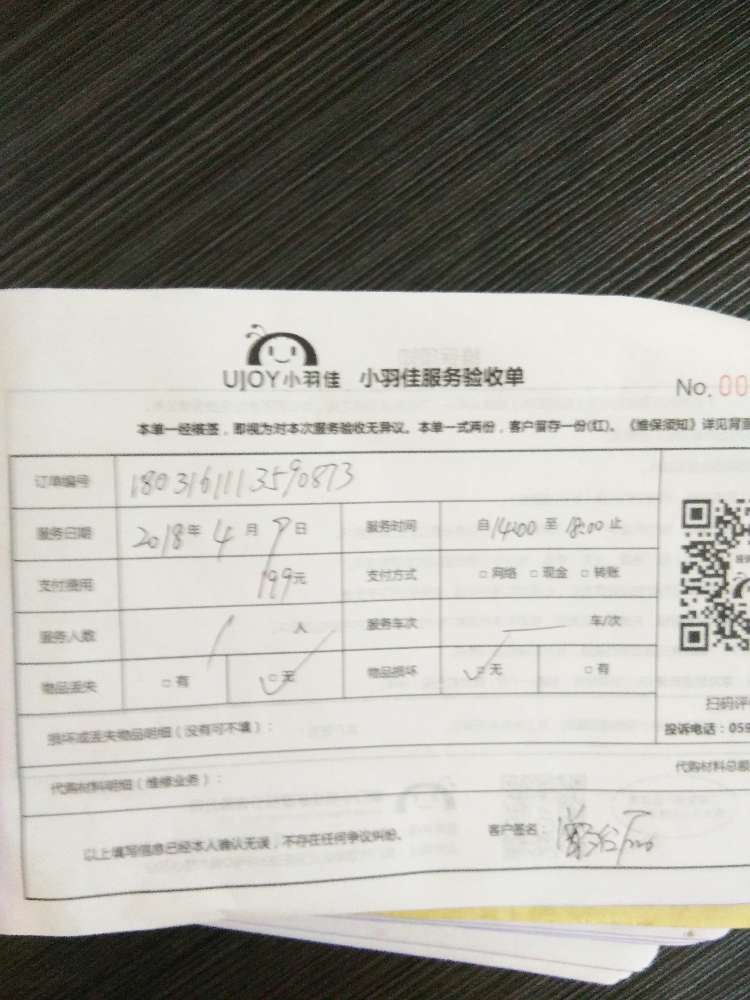 UJOY小羽佳 小羽佳服务验收单
No. 00
本单一经签, 即视为对本次服务验收无异议。本单一式两份, 客户留存一份(红)。《维保须知》详见背面
订单编号 1803161113590873
服务日期 2018年4月9日 服务时间 自14:00至18:00止
支付费用 199元 支付方式 □网络 □现金 □转账
服务人数 1人 服务车次 — 车/次
物品丢失 □有 □无 ✓ 物品损坏 □无 ✓ □有
扫码评
损坏或丢失物品明细(没有可不填):
投诉电话:059
代购材料明细(维修业务):
代购材料总额
以上填写信息已经本人确认无误, 不存在任何争议纠纷。
客户签名: